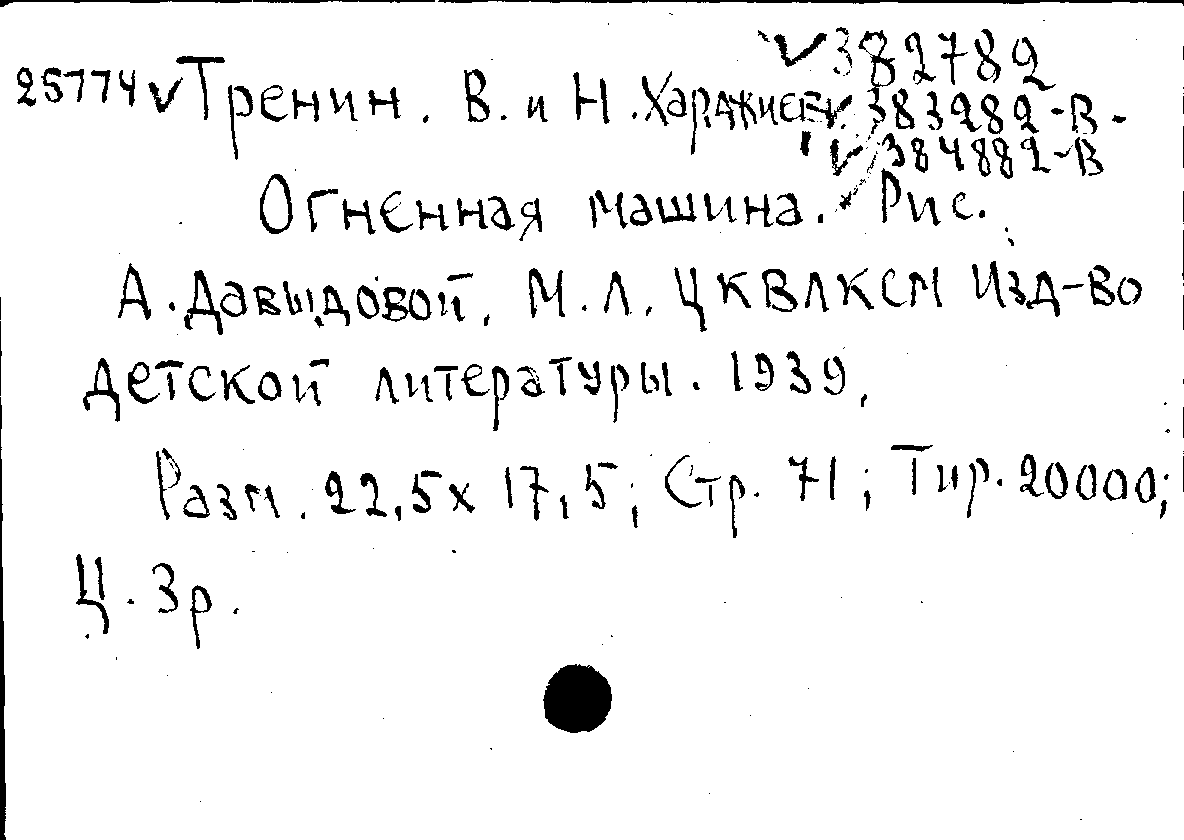 382782
25774 Тренин. В. и Н. Харджиев. 383282-В-
384882-В
Огненная машина. Рис.
А. Давыдовой. М. Л. ЦКВЛКСМ Изд-во
детской литературы. 1939.
Разм. 22,5х 17,5; Стр. 71; Тир. 20000;
Ц. 3р.